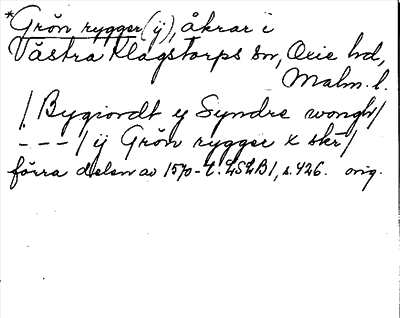 *Grön rygger (ÿ), åkrar i
Västra Klagstorps sn, Oxie hd,
Malm. l.
/ Bygiordt ÿ Syndre wongh /
--- / ÿ Grön rygger x skr /
förra delen av 1570-t. LSLB1, s. 426. orig.